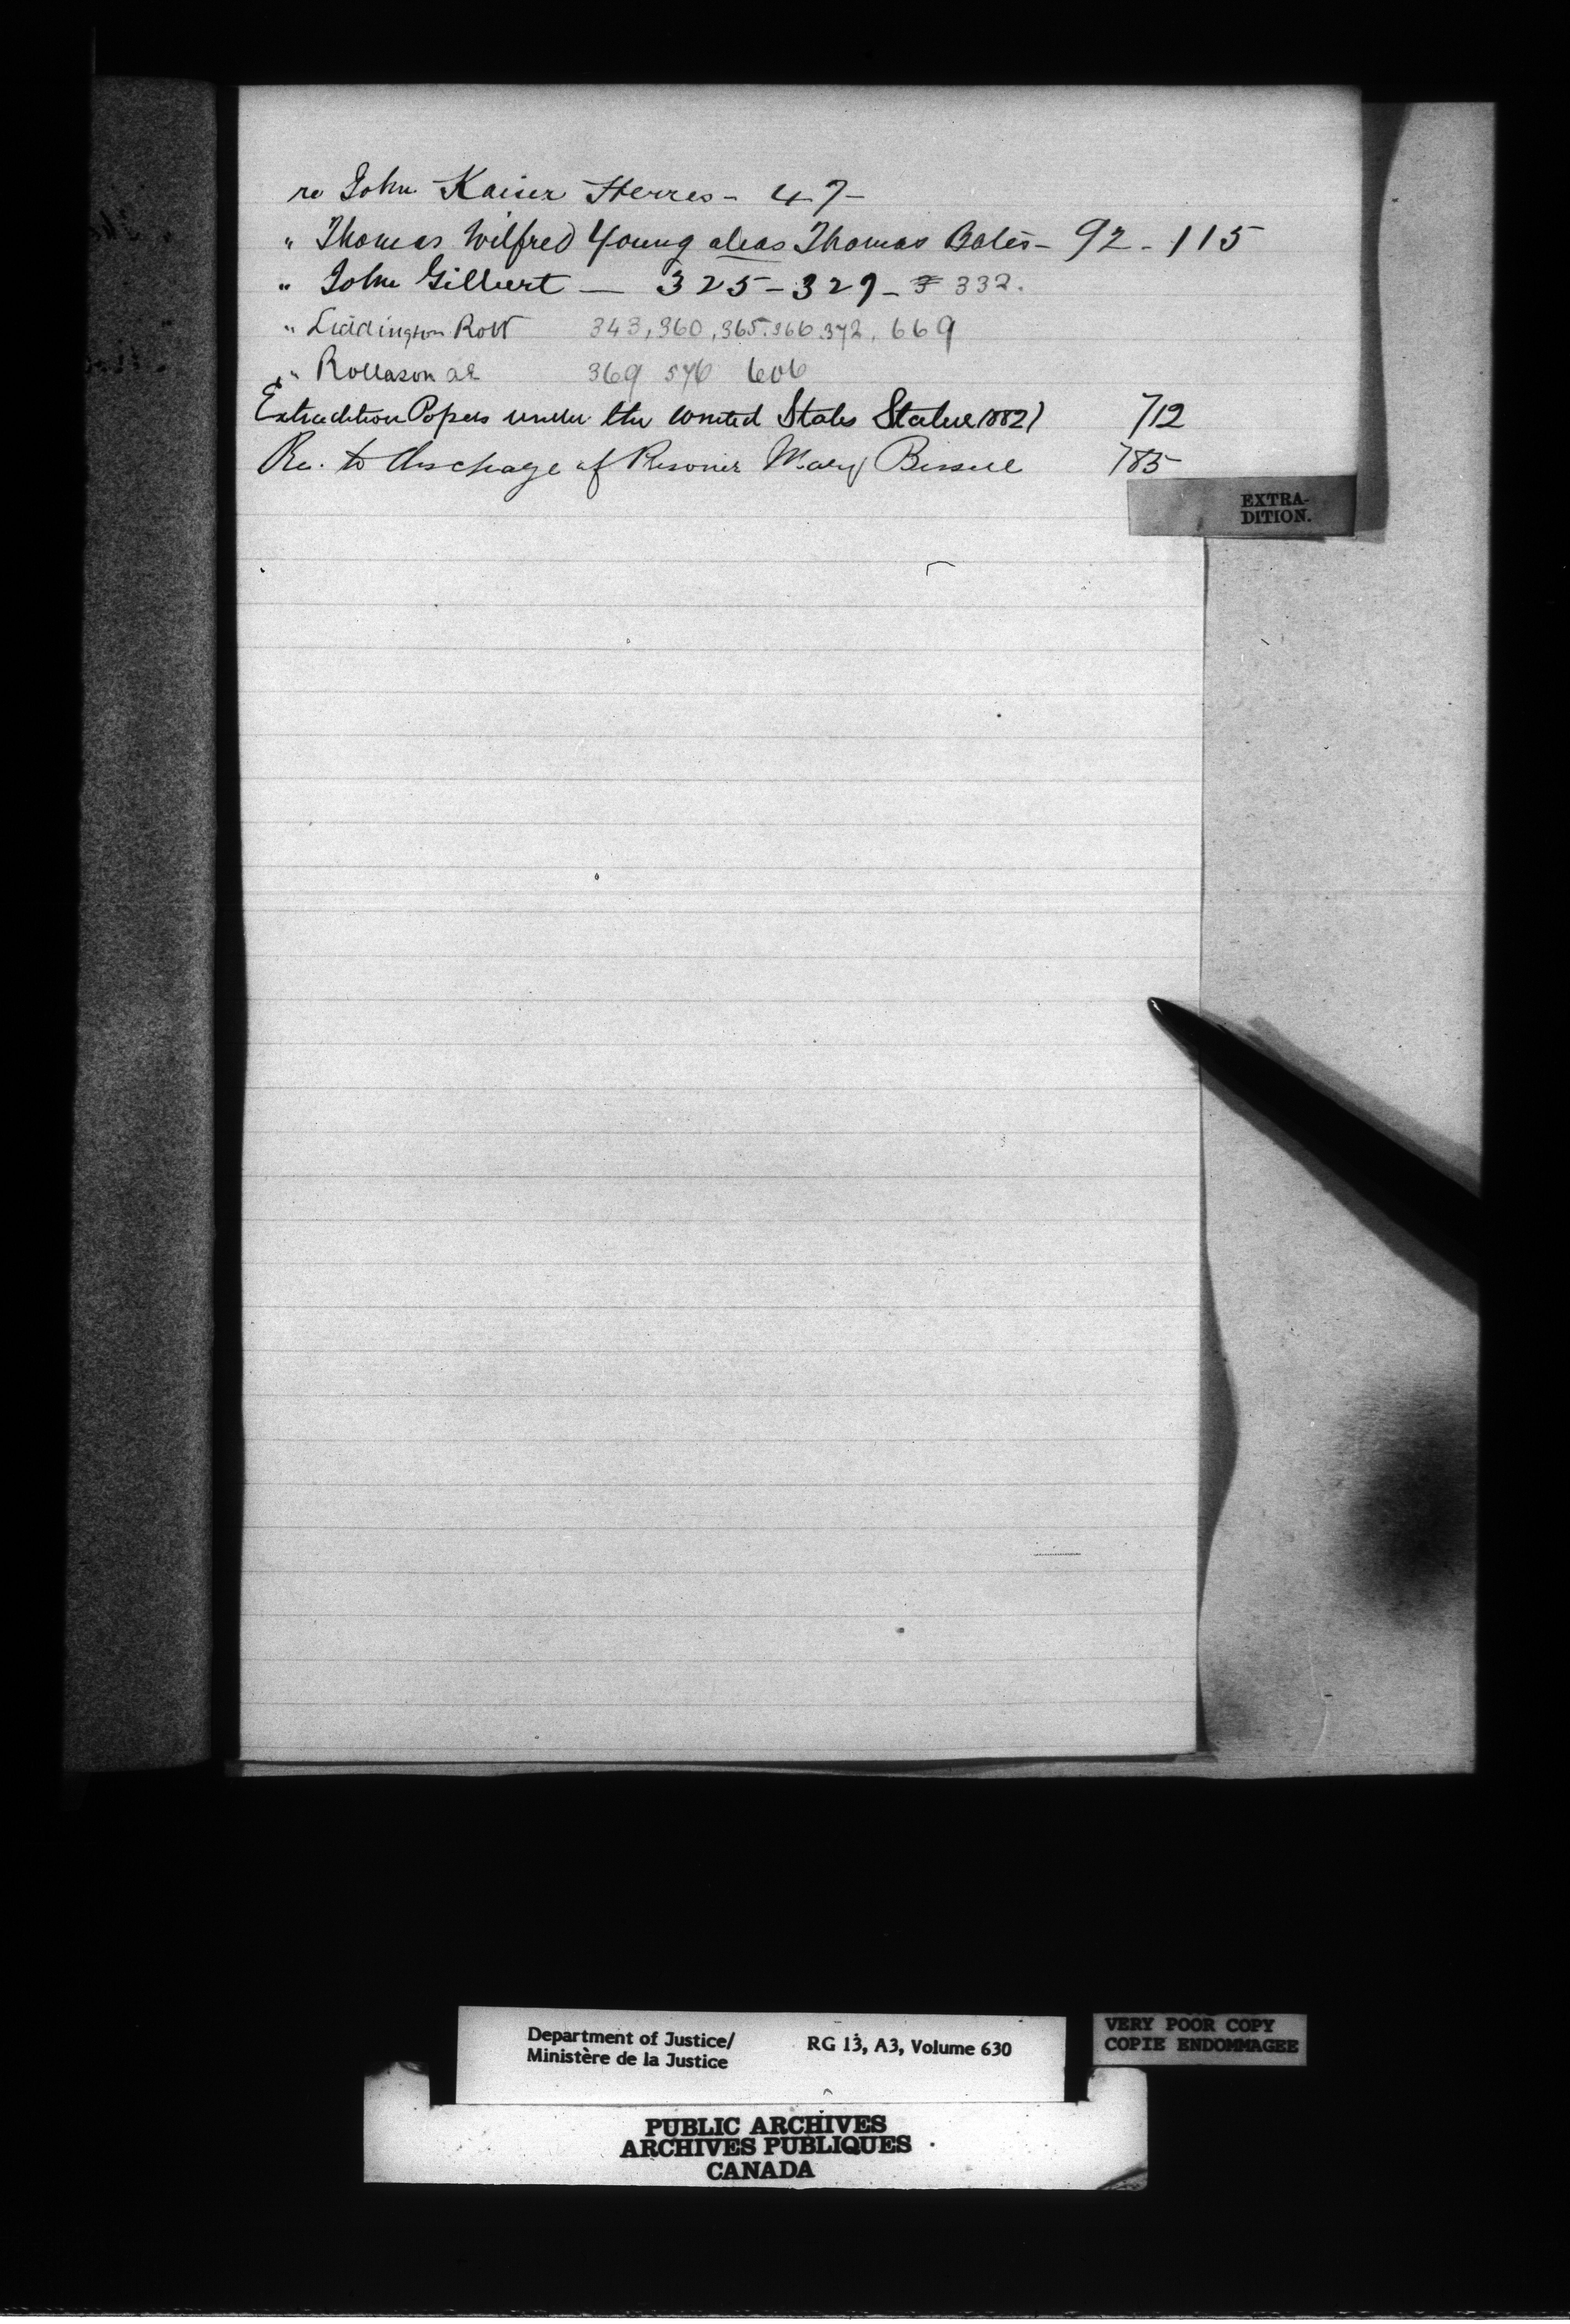 re John Kaiser Herres - 47 -
" Thomas Wilfred Young alias Thomas Bates - 92 - 115
" John Gilbert — 325 - 329 - 332.
" Liddington Robt 343, 360, 365. 366 372, 669
" Rollason 369 576 606
Extradition Papers under the United States Statue 1882) 712
Re. to discharge of Prisoner Mary Bissell 785
EXTRA-
DITION.
Department of Justice/ RG 13, A3, Volume 630
Ministère de la Justice
VERY POOR COPY
COPIE ENDOMMAGEE
PUBLIC ARCHIVES
ARCHIVES PUBLIQUES
CANADA